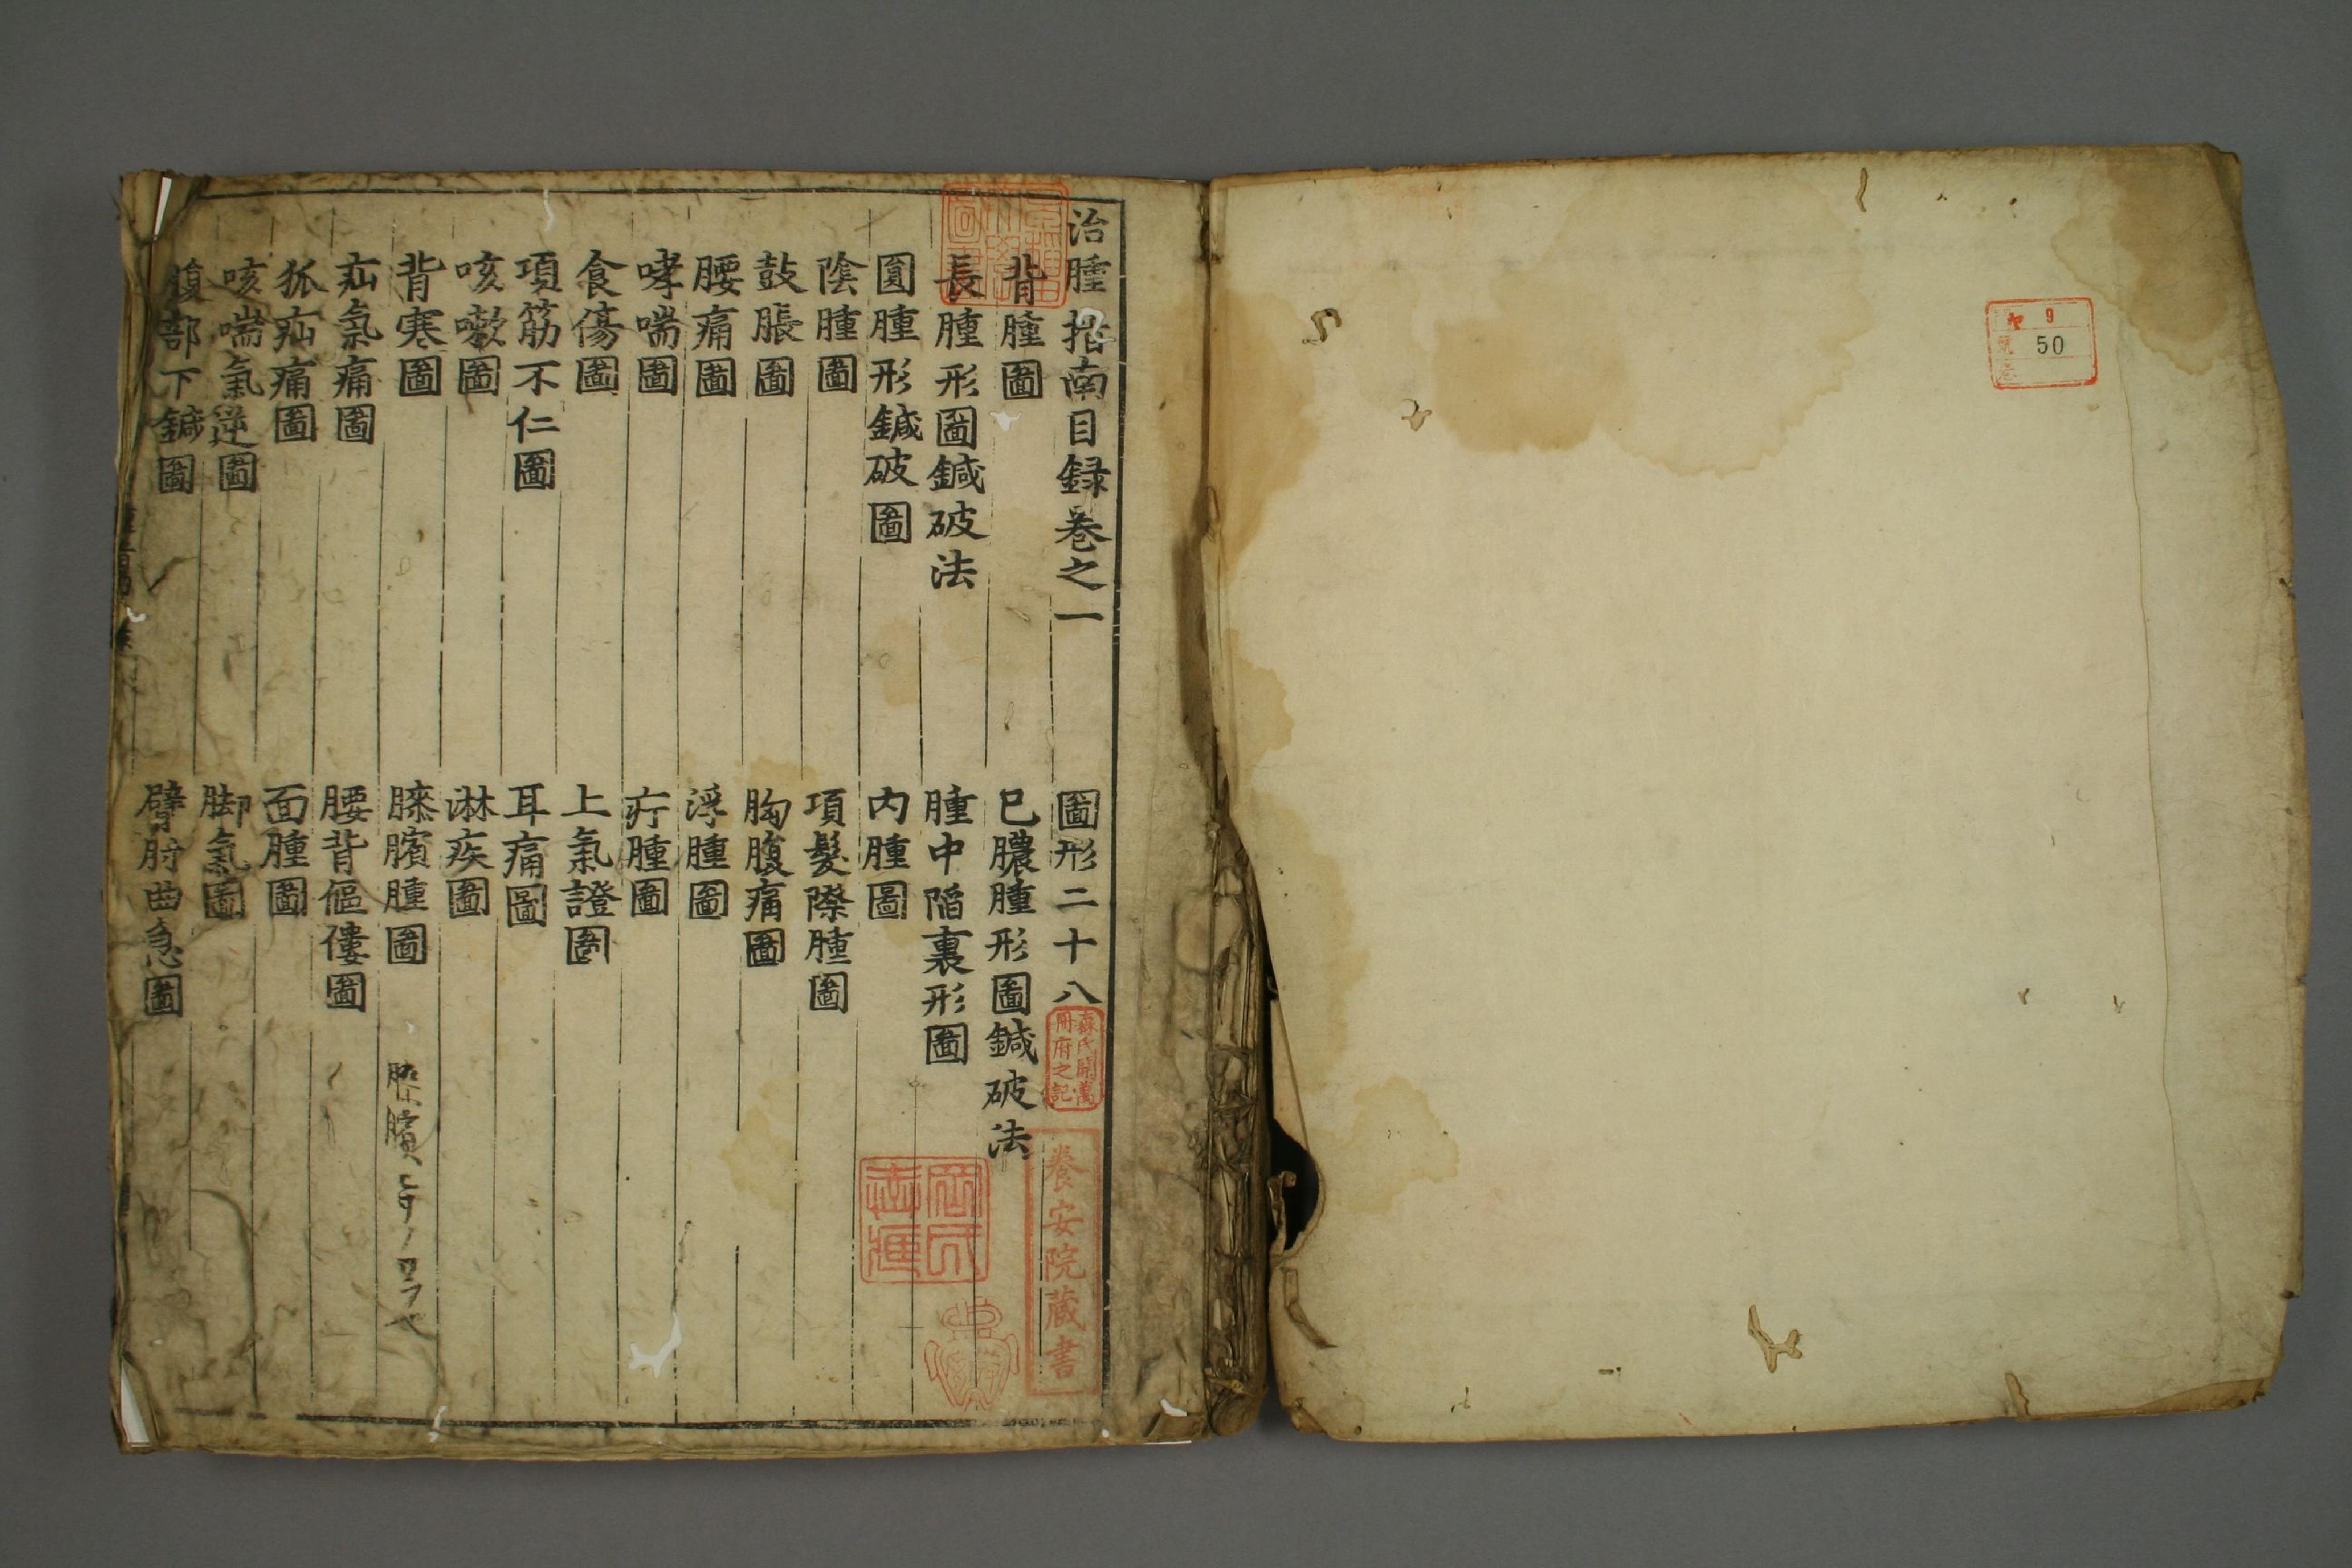 治腫指南目録卷之一 圖形二十八
背腫圖 已膿腫形圖鍼破法
長腫形圖鍼破法 腫中陷裏形圖
圓腫形鍼破圖 内腫圖
陰腫圖 項髮際腫圖
鼓脹圖 胸腹痛圖
腰痛圖 浮腫圖
哮喘圖 疔腫圖
食傷圖 上氣證圖
項筋不仁圖 耳痛圖
咳嗽圖 淋疾圖
背寒圖 膝臏腫圖
疝氣痛圖 腰背傴僂圖
狐疝痛圖 面腫圖
咳喘氣逆圖 脚氣圖
腹部下鍼圖 臂肘曲急圖
森氏開萬冊府之記
養安院蔵書
9
50